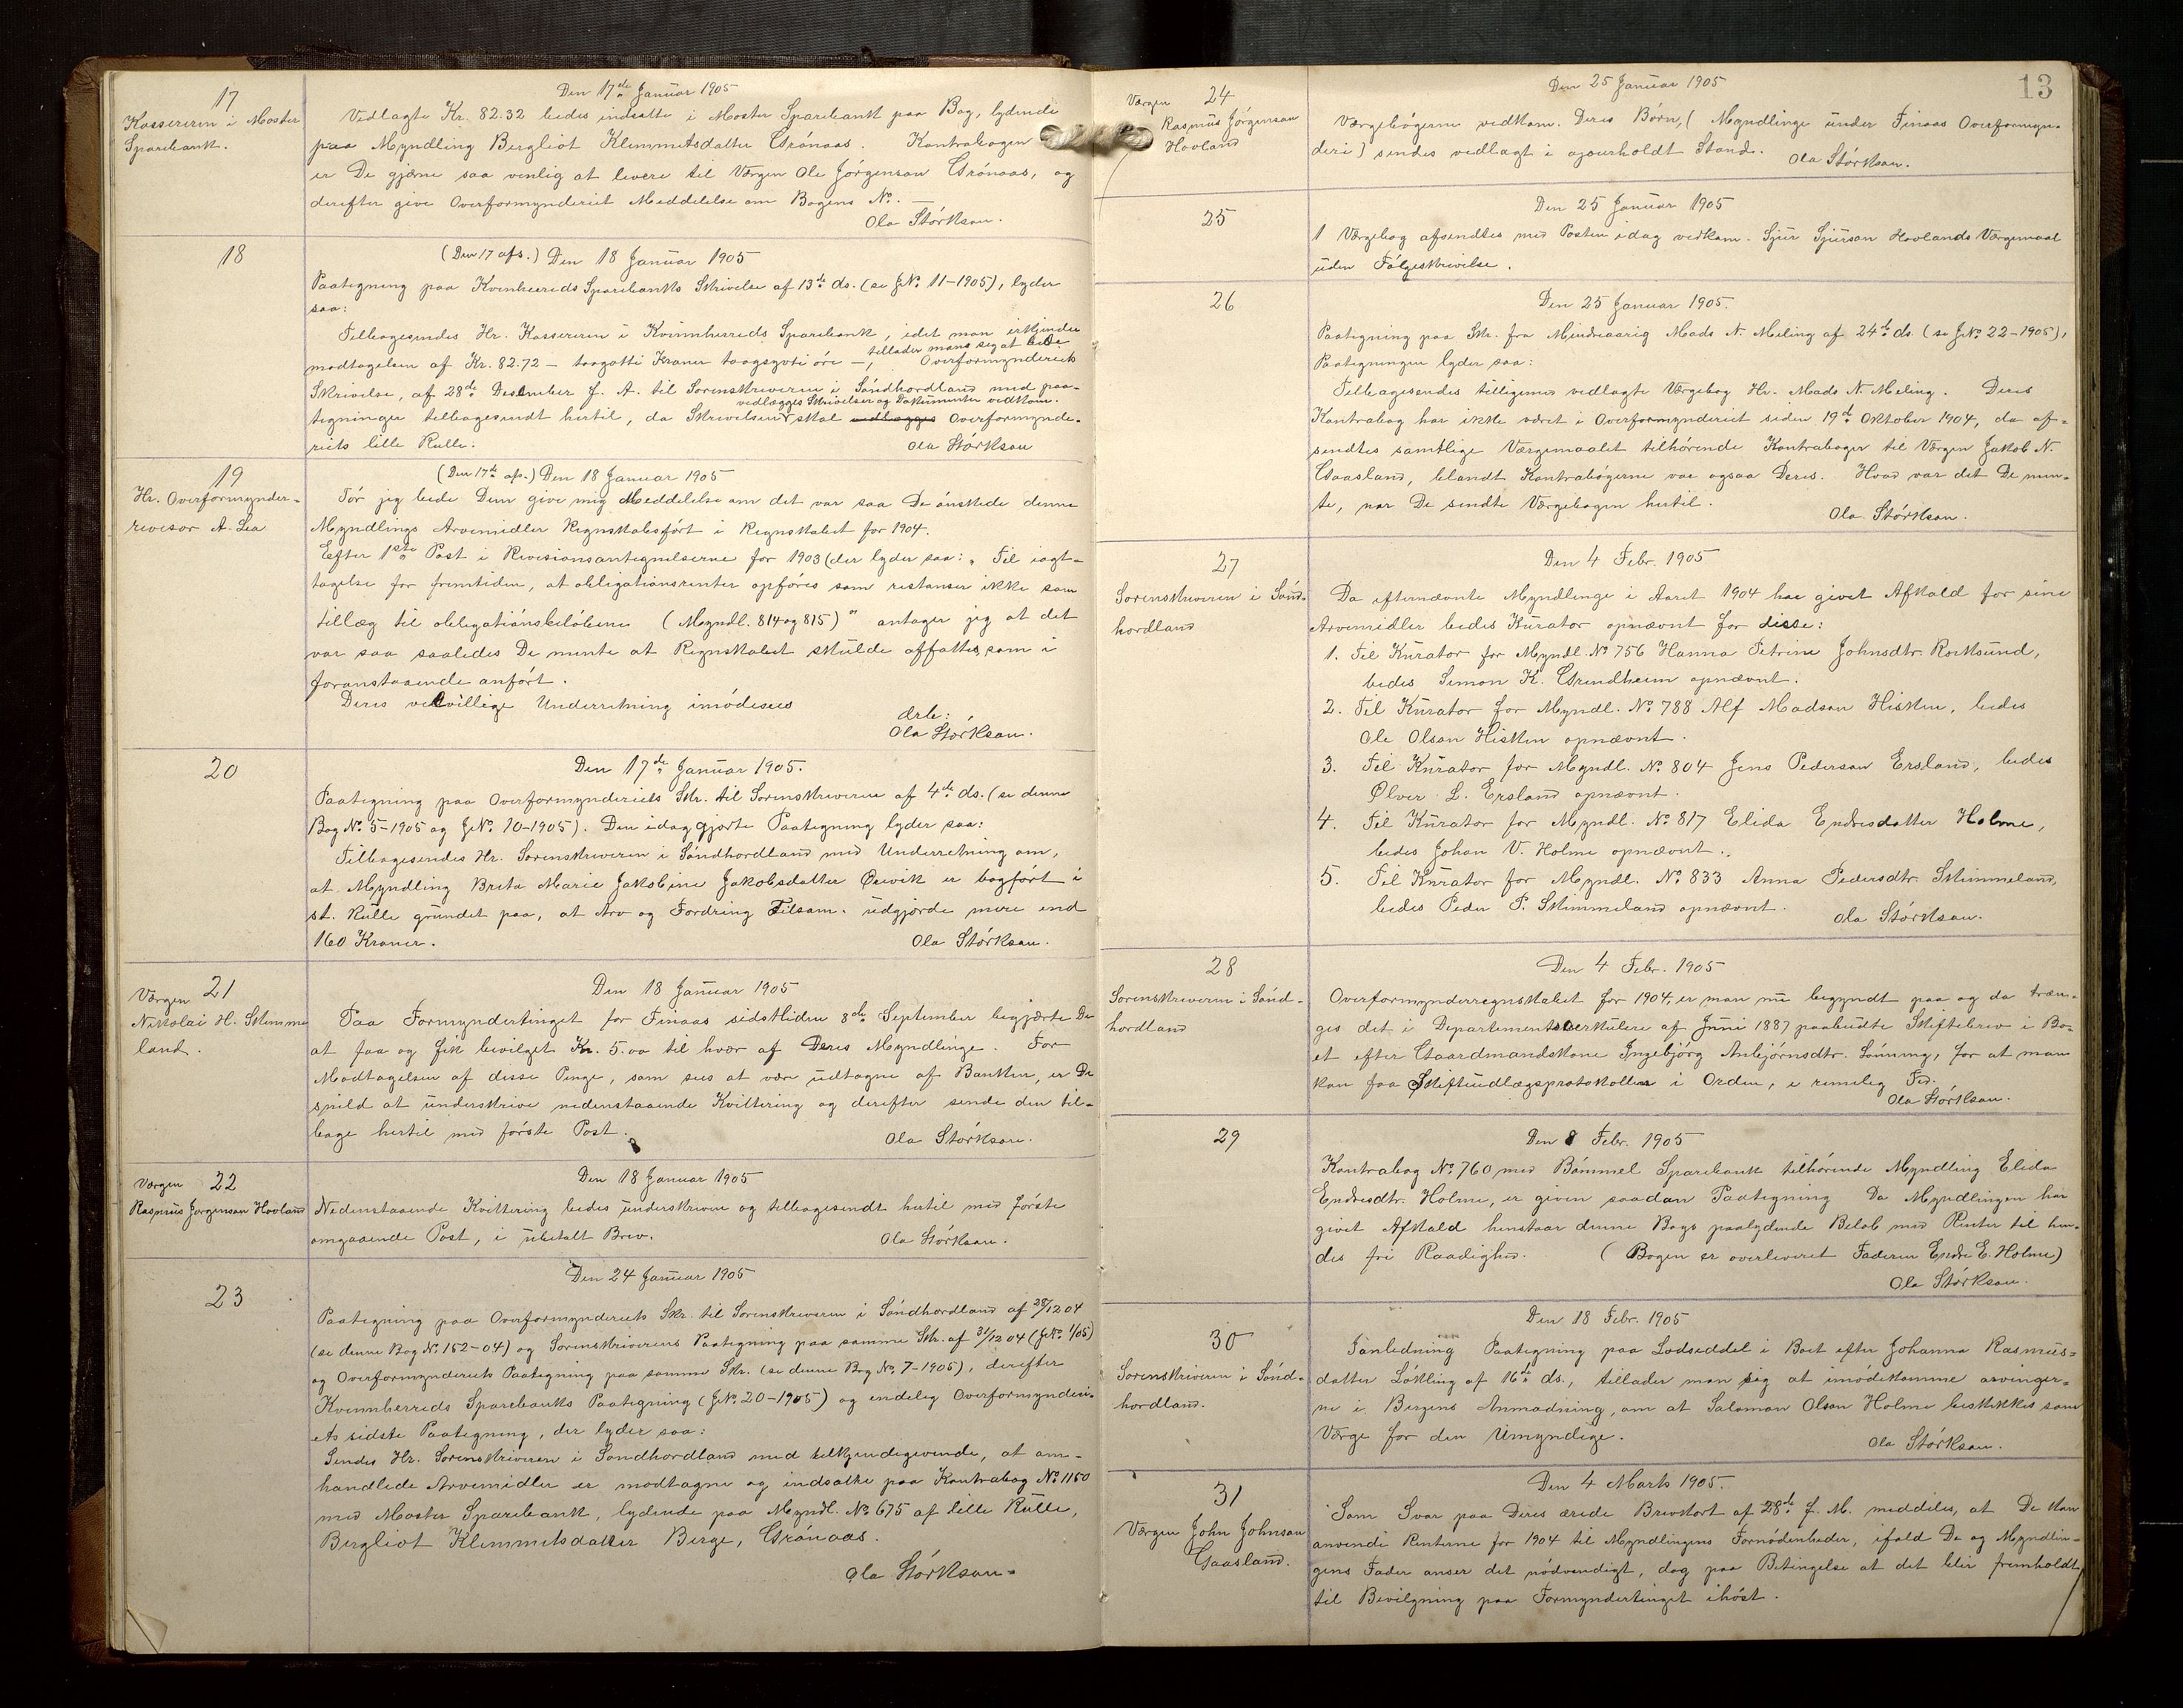 17
Kassereren i Moster
Sparebank.
Den 17de Januar 1905
Vedlagte Kr. 82.32 bedes indsatte i Moster Sparebank paa Bog, lydende
paa Myndling Bergliot Klemmetsdatter Grönaas. Kontrabogen
er De gjærne saa venlig at levere til Værgen Ole Jörgenson Grönaas, og
derefter give Overformynderiet Meddelelse om Bogens No. —
Ola Störkson.
18
(Den 17 afs.) Den 18 Januar 1905
Paategning paa Kvinherreds Sparebanks Skrivelse af 13de ds. (se JNo 11-1905), lyder
saa:
Tilbagesendes Hr. Kassereren i Kvinnherreds Sparebank, idet man erkjender
modtagelsen af Kr. 82.72 — toogotti Kroner toogsyvti öre —, tillader mans seg at bede Overformynderiets
Skrivelse, af 28de Desember f. A. til Sorenskriveren i Söndhordland med paa-
tegninger tilbagesendt hertil, da Skrivelsen skal vedlægges vedlægges Skrivelser og Dokumenter vedkom. Overformynde-
riets lille Rulle.
Ola Störkson
19
Hr. Overformynder-
revisor A. Lea
(Den 17de afs.) Den 18 Januar 1905
Tör jeg bede Dem give mig Meddelelse om det var saa De önskede denne
Myndlings Arvemidler Regnskabsfört i Regnskabet for 1904.
Efter 1ste Post i Revisionsantegnelserne for 1903 (der lyder saa: „Til iagt-
tagelse for fremtiden, at obligationsrenter opföres som restanser ikke som
tillæg til obligationsbelöbene (Myndl. 814 og 815)" antager jeg at det
var saa saaledes De mente at Regnskabet skulde affattes, som i
foranstaaende anfört.
Deres velvillige Underretning imödesees
ærb:
Ola Störkson.
20
Den 17de Januar 1905.
Paategning paa Overformynderiets Skr. til Sorenskriveren af 4de ds. (se denne
Bog No. 5-1905 og JNo. 10-1905). Den idag gjorte Paategning lyder saa:
Tilbagesendes Hr. Sorenskriveren i Söndhordland med Underretning om,
at Myndling Brita Marie Jakobine Jakobsdatter Örevik er bogfört i
st. Rulle grundet paa, at Arv og Fordring Tilsam. udgjorde mere end
160 Kroner.
Ola Störkson.
21
Værgen
Nikolai H. Skimme
land.
Den 18 Januar 1905
Paa Formyndertinget for Finaas sidstliden 8de September begjærte De
at faa og fik bevilget Kr. 5.00 til hver af Deres Myndlinge. For
Modtagelsen af disse Penge, som sees at være udtagne af Banken, er De
snild at underskrive nedenstaaende Kvittering og derefter sende den til-
bage hertil med förste Post.
Ola Störkson.
22
Værgen
Rasmus Jorgenson Hovland
Den 18 Januar 1905
Nedenstaaende Kvittering bedes underskreven og tilbagesendt hertil med förste
omgaaende Post, i ubetalt Brev.
Ola Störkson.
23
Den 24 Januar 1905
Paategning paa Overformynderiets Skr. til Sorenskriveren i Söndhordland af 28/12 04
(se denne Bog No. 152-04) og Sorenskriverens Paategning paa samme Skr. af 31/12 04 (JNo. 1/05)
og Overformynderiets Paategning paa samme Skr. (se denne Bog No. 7-1905), derefter
Kvinnherreds Sparebanks Paategning (JNo. 20-1905) og endelig Overformynderi-
ets sidste Paategning, der lyder saa:
Sendes Hr. Sorenskriveren i Söndhordland med tilkjendegivende, at om-
handlede Arvemidler er modtagne og indsatte paa Kontrabog No. 1150
med Moster Sparebank, lydende paa Myndl. No. 675 af lille Rulle,
Bergliot Klemmetsdatter Berge, Grönaas.
Ola Störkson.
13
24
Værgen
Rasmus Jörgenson
Hovland
Den 25 Januar 1905
Værgebögerne vedkom. Deres Börn, (Myndlinge under Finaas Overformyn-
deri) sendes vedlagt i ajourholdt Stand.
Ola Störkson.
25
Den 25 Januar 1905
1 Værgebog afsendtes med Posten idag vedkom. Sjur Sjurson Hovlands Værgemaal
uden Fölgeskrivelse.
26
Den 25 Januar 1905.
Paategning paa Skr. fra Mindreaarig Mads N. Meling af 24de ds. (se JNo. 22-1905),
Paategningen lyder saa:
Tilbagesendes tilligemed vedlagte Værgebog Hr. Mads N. Meling. Deres
Kontrabog har ikke været i Overformynderiet siden 19de Oktober 1904, da af-
sendtes samtlige Værgemaalet tilhörende Kontraboger til Værgen Jakob N.
Gaasland, blandt Kontrabögerne var ogsaa Deres. Hvad var det De men-
te, nar De sendte Værgebogen hertil.
Ola Störkson.
27
Sorenskriveren i Sönd-
hordland
Den 4 Febr. 1905
Da efternævnte Myndlinge i Aaret 1904 har givet Afkald for sine
Arvemidler bedes Kurator opnævnt for disse:
1. Til Kurator for Myndl. No 756 Hanna Petrine Johnsdtr. Rorksund,
bedes Simon K. Grindheim opnævnt.
2. Til Kurator for Myndl. No 788 Alf Madson Hisken, bedes
Ole Olson Hisken opnævnt.
3. Til Kurator for Myndl. No. 804 Jens Pederson Ersland, bedes
Ølver L. Ersland opnævnt.
4. Til Kurator for Myndl. No. 817 Elida Endresdatter Holme,
bedes Johan V. Holme opnævnt.
5. Til Kurator for Myndl. No. 833 Anna Pedersdtr. Skimmeland,
bedes Peder P. Skimmeland opnævnt.
Ola Störkson.
28
Sorenskriveren i Sönd-
hordland
Den 4 Febr. 1905
Overformynderregnskabet for 1904, er man nu begyndt paa og da træn-
ges det i Departementscerkulere af Juni 1887 paabudte Skiftebrev i Bo-
et efter Gaardmandskone Ingebjörg Anbjörnsdtr. Lönning, for at man
kan faa Skifteudlægsprotokollen i Orden, i rimelig Tid.
Ola Störkson.
29
Den 8 Febr. 1905
Kontrabog No. 760 med Bömmel Sparebank tilhörende Myndling Elida
Endresdtr. Holme, er given saadan Paategning Da Myndlingen har
givet Afkald henstaar denne Bogs paalydende Belöb med Renter til hen-
des fri Raadighed. (Bogen er overleveret Faderen Endre E. Holme)
Ola Störkson.
30
Sorenskriveren i Sönd-
hordland.
Den 18 Febr. 1905
Ianledning Paategning paa Lodseddel i Boet efter Johanna Rasmus-
datter Lökling af 16de ds., tillader man sig at imödekomme arvinger-
ne i Bergens Anmodning, om at Salomon Olson Holme beskikkes som
Værge for den Umyndige.
Ola Störkson.
31
Værgen John Johnson
Gaasland.
Den 4 Marts 1905.
Som Svar paa Deres ærede Brevkort af 28de f. M. meddeles, at De kan
anvende Renterne for 1904 til Myndlingens Fornödenheder, ifald De og Myndlin-
gens Fader anser det nödvendigt, dog paa Betingelse at det blir fremholdt
til Bevilgning paa Formyndertinget ihöst.